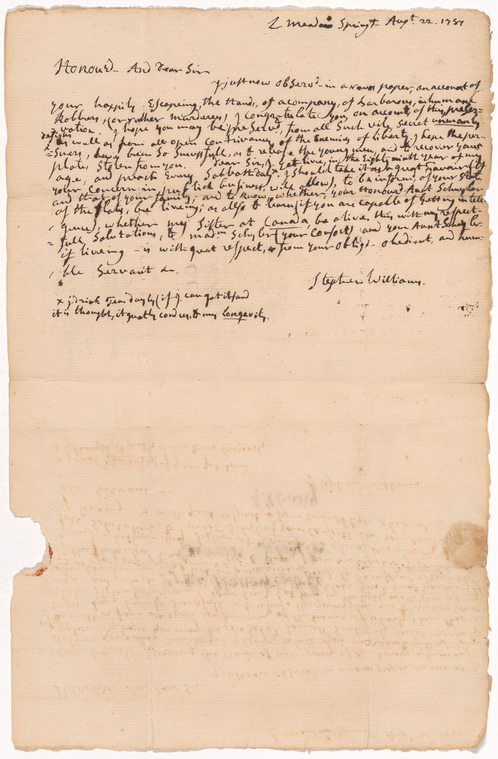 L meadow Springf^d Aug^t. 22. 1781
Honour^d. And Dear Sir
I just now Observ^d. in a news paper, an account of
your happily Escapeing, the Hands, of a company, of barbarous, inhuman
Robbers, (or rather murderers) I congratulate you, on account of this preser-
vation. I hope you may be preserv^d, from all Such vile, Secret
as well as from all open contrivances of the Enemies of liberty, I hope the per-
suers, have been So Successfull, as to releive the young men, and to recover your
plate Stolen from you. Dear Sir, I yet live, in the Eighty ninth year of my
age, and preach Every Sabbath day^x. I should take it as a great favour (if
your Concern in publick business, will allow), to be inform^d of your State
and that of your family; and to know whether, your Honour^d Aunt Schuyler
of the flats, be liveing; as also to learn (if you are capable of getting intelle-
gence), whether my Sister at Canada be alive, this with my respect-
full Salutations, to mad^m Schyler (your Consort) and your Aunt Schyler
if liveing - is with great respect, from your Oblig^d. Obedient, and hum-
ble Servant &c
Stephen Williams.
x I drink Tea dayly (if I can get it) and
it is thought, it greatly conduces, to my longevity.